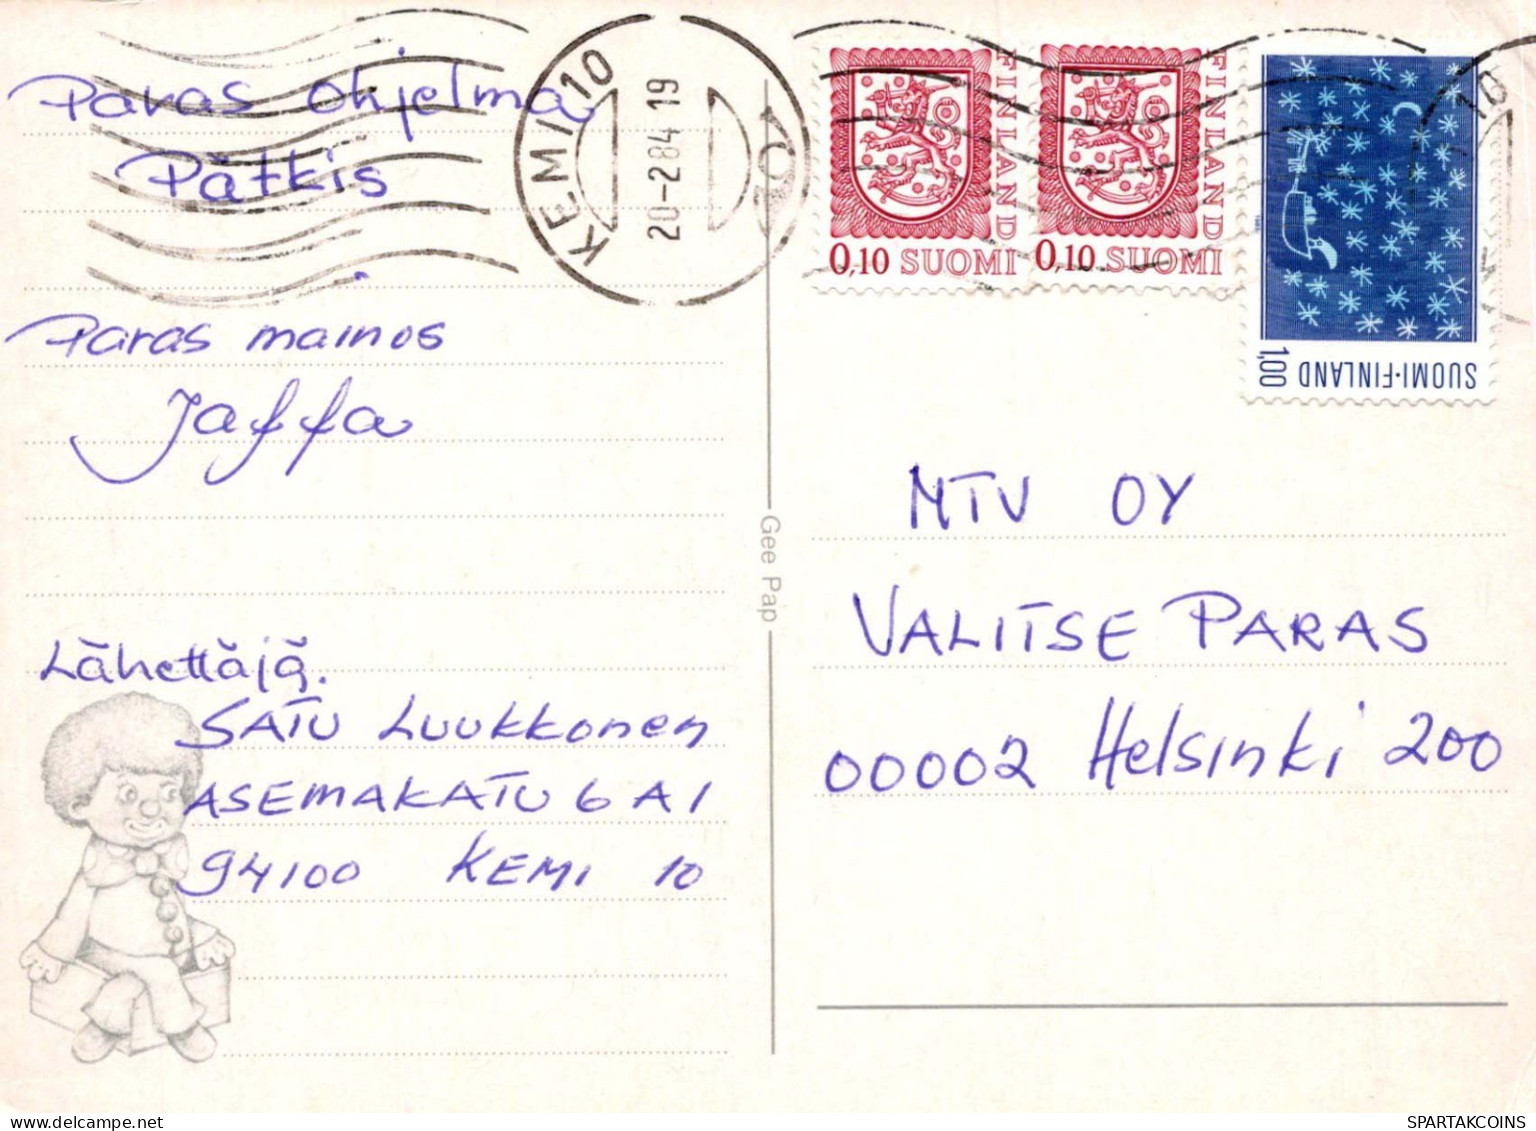 Paras ohjelma
Pätkis
Paras mainos
Jaffa
Lähettäjä.
SATU Luukkonen
ASEMAKATU 6 A 1
94100 KEMI 10
KEMI 10
20-2.84 19
Gee Pap
FINLAND
0,10 SUOMI
FINLAND
0,10 SUOMI
SUOMI-FINLAND 1,00
MTV OY
VALITSE PARAS
00002 Helsinki 200
SPARTAKCOINS